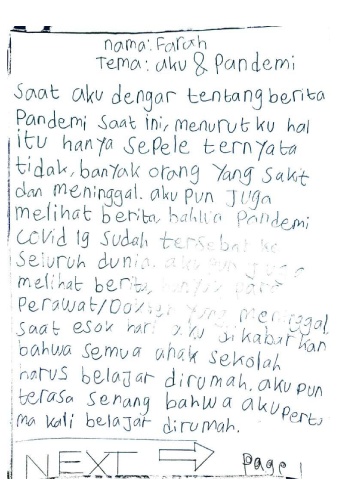 nama: Farah
Tema: aku & Pandemi
Saat aku dengar tentang berita
Pandemi saat ini, menurut ku hal
itu hanya sepele ternyata
tidak, banyak orang yang sakit
dan meninggal. aku pun juga
melihat berita, bahwa Pandemi
Covid 19 sudah tersebar ke
seluruh dunia. aku pun juga
melihat berita, banyak para
Perawat/Dokter yang meninggal.
saat esok hari aku dikabarkan
bahwa semua anak sekolah
harus belajar dirumah. aku pun
terasa senang bahwa aku pert
ma kali belajar dirumah.
NEXT ⇒ Page 1